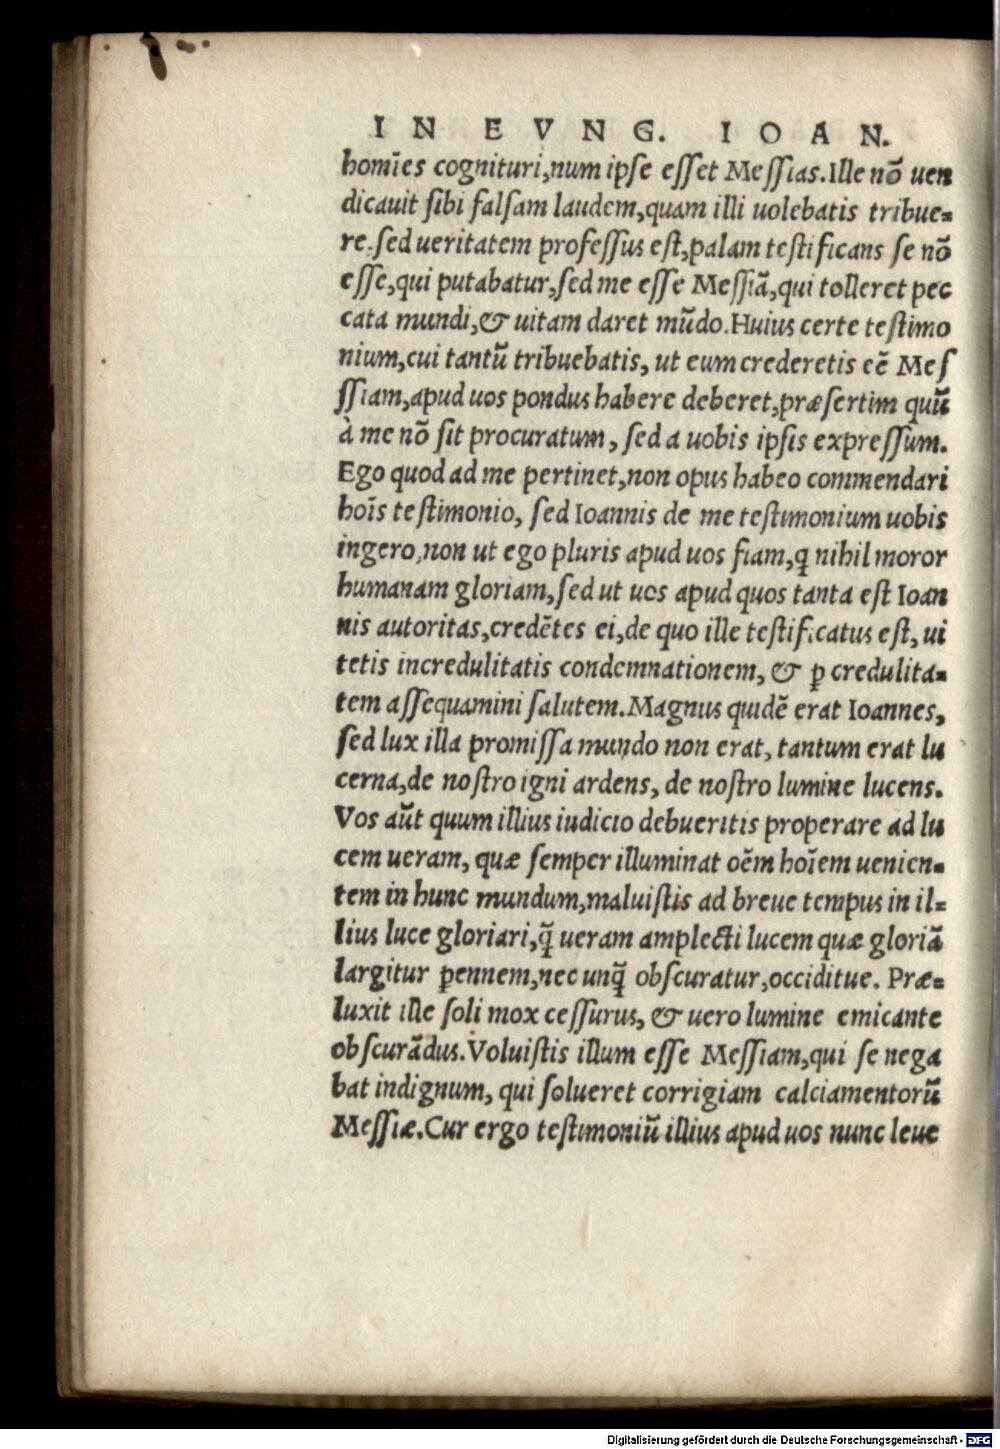 IN EVNG. IOAN.
homīes cognituri,num ipſe eſſet Meſſias.Ille nō uen
dicauit ſibi falſam laudem,quam illi uolebatis tribue=
re.ſed ueritatem profeſſus eſt,palam teſtificans ſe nō
eſſe,qui putabatur,ſed me eſſe Meſſiā,qui tolleret pec
cata mundi,& uitam daret mūdo.Huius certe teſtimo
nium,cui tantū tribuebatis, ut eum crederetis eē Meſ
ſſiam,apud uos pondus habere deberet,præſertim quū
à me nō ſit procuratum, ſed a uobis ipſis expreſſum.
Ego quod ad me pertinet,non opus habeo commendari
hoīs teſtimonio, ſed Ioannis de me teſtimonium uobis
ingero,non ut ego pluris apud uos fiam,ꝗ nihil moror
humanam gloriam,ſed ut uos apud quos tanta eſt Ioan
nis autoritas,credētes ei,de quo ille teſtificatus eſt, ui
tetis incredulitatis condemnationem, & ꝑ credulita=
tem aſſequamini ſalutem.Magnus quidē erat Ioannes,
ſed lux illa promiſſa mundo non erat, tantum erat lu
cerna,de noſtro igni ardens, de noſtro lumine lucens.
Vos aūt quum illius iudicio debueritis properare ad lu
cem ueram, quæ ſemper illuminat oēm hoīem uenien=
tem in hunc mundum,maluiſtis ad breue tempus in il=
lius luce gloriari,q̄ ueram amplecti lucem quæ gloriā
largitur ꝑennem,nec unq̄ obſcuratur,occiditue. Præ=
luxit ille ſoli mox ceſſurus, & uero lumine emicante
obſcurādus.Voluiſtis illum eſſe Meſſiam,qui ſe nega
bat indignum, qui ſolueret corrigiam calciamentorū
Meſſiæ.Cur ergo teſtimoniū illius apud uos nunc leue
Digitalisierung gefördert durch die Deutsche Forschungsgemeinschaft - DFG